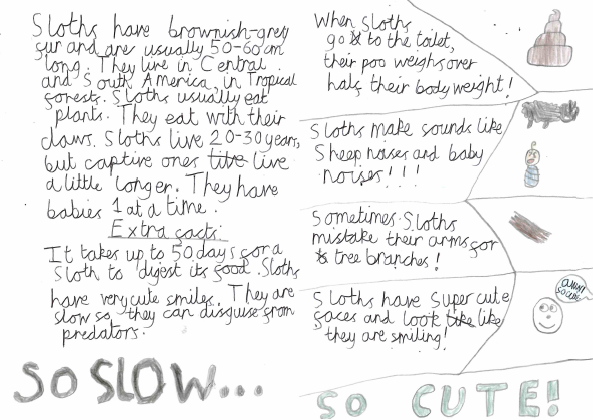 Sloths have brownish-grey
fur and are usually 50-60cm
long. They live in Central
and South America, in Tropical
forests. Sloths usually eat
plants. They eat with their
claws. Sloths live 20-30 years,
but captive ones live
a little longer. They have
babies 1 at a time.
Extra facts:
It takes up to 50 days for a
Sloth to digest its food. Sloths
have very cute smiles. They are
slow so they can disguise from
predators.
SO SLOW...
When Sloths
go to the toilet,
their poo weighs over
half their body weight!
Sloths make sounds like
Sheep noises and baby
noises!!!
Sometimes Sloths
mistake their arms for
tree branches!
Sloths have super cute
faces and look like
they are smiling!
SO CUTE!